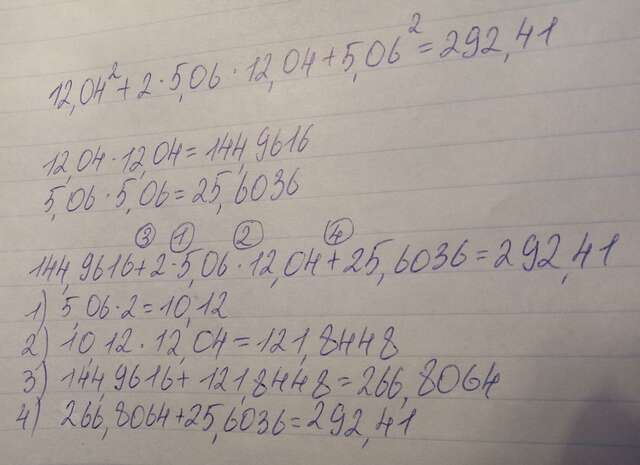 12,04² + 2 · 5,06 · 12,04 + 5,06² = 292,41
12,04 · 12,04 = 144,9616
5,06 · 5,06 = 25,6036
③ ① ② ④
144,9616 + 2 · 5,06 · 12,04 + 25,6036 = 292,41
1) 5,06 · 2 = 10,12
2) 10,12 · 12,04 = 121,8448
3) 144,9616 + 121,8448 = 266,8064
4) 266,8064 + 25,6036 = 292,41